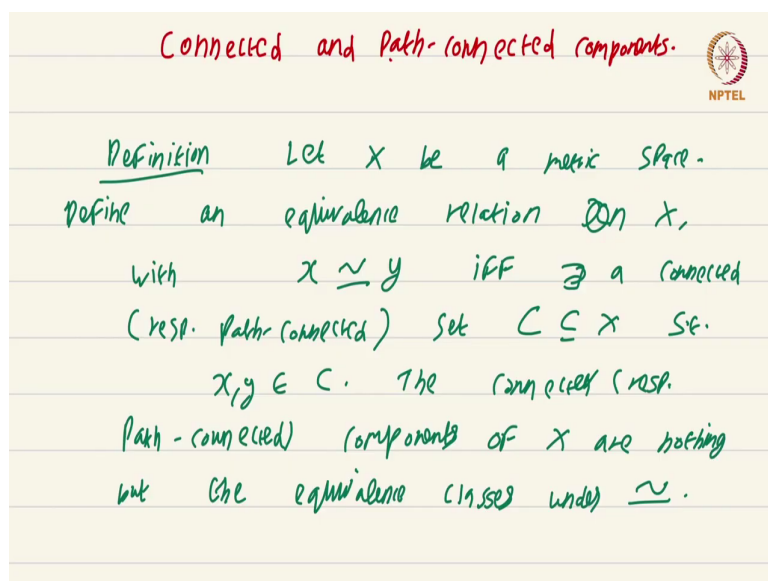 Connected and Path-connected components.
NPTEL
Definition Let X be a metric space.
Define an equivalence relation on X,
with x ≃ y iff ∃ a connected
(resp. path-connected) set C ⊆ X s.t.
x, y ∈ C. The connected (resp.
Path-connected) components of X are nothing
but the equivalence classes under ≃.